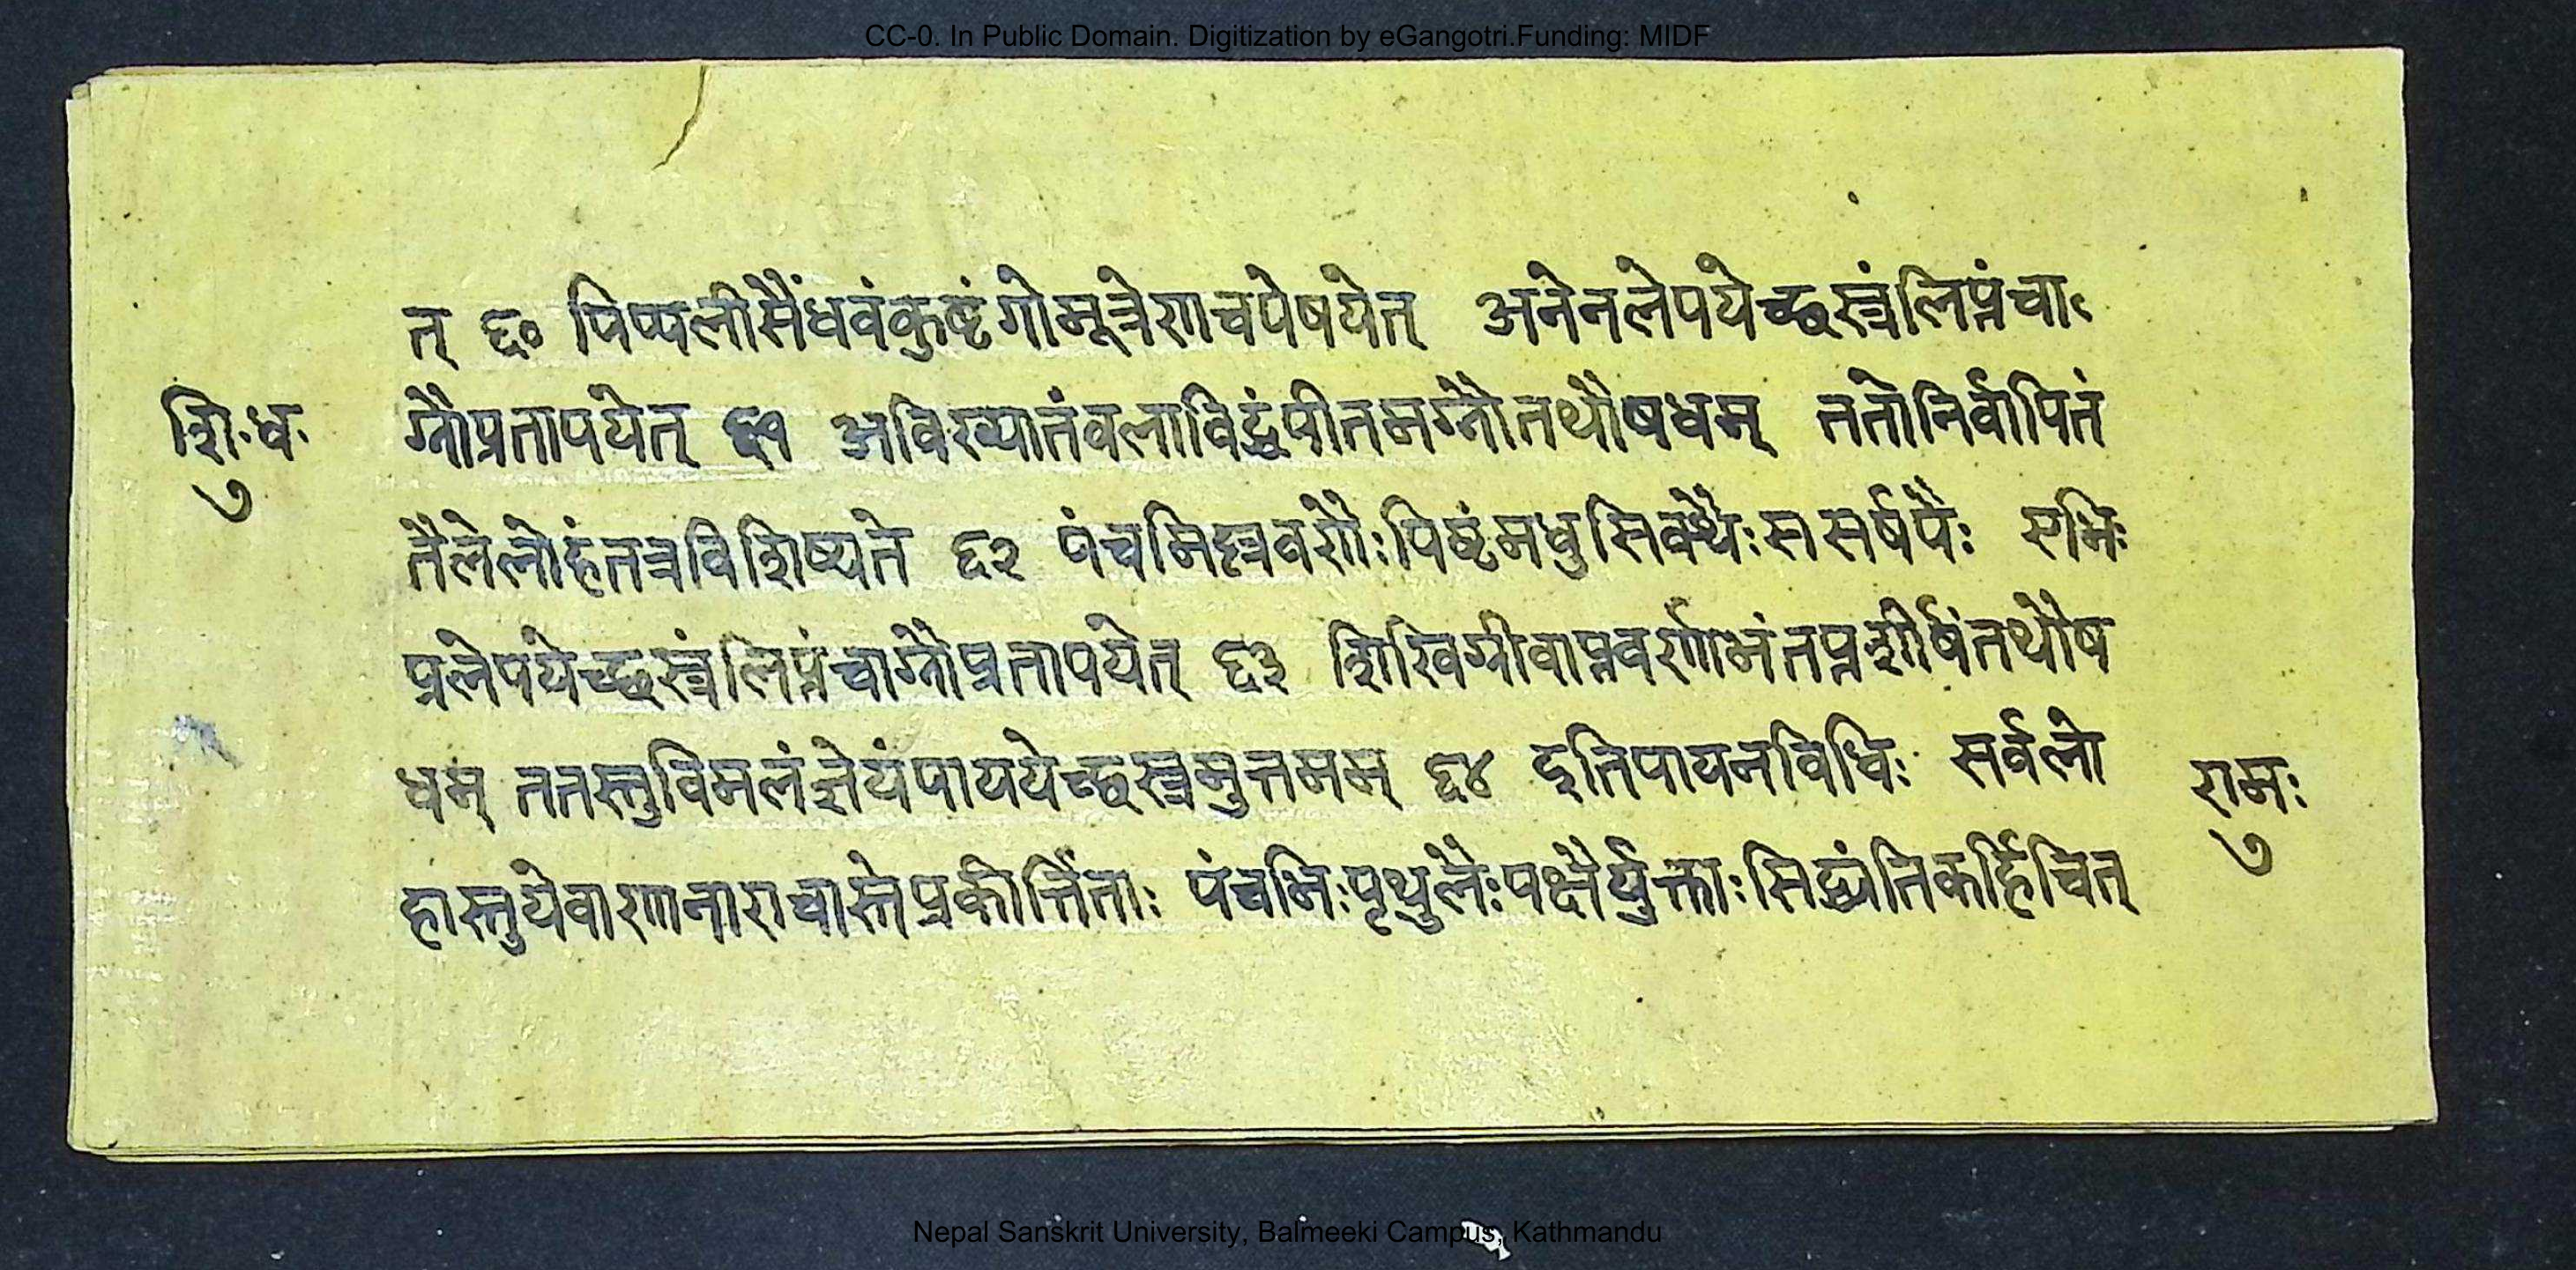 CC-0. In Public Domain. Digitization by eGangotri.Funding: MIDF
त् ६० पिप्पलीसैंधवंकुष्टंगोमूत्रेणचपेषयेत् अनेनलेपयेच्छस्त्रंलिप्तंचा
शिःधः
ग्नौप्रतापयेत् ६१ अविख्यातंवलाविद्धंपीतमग्नौतथौषधम् ततोनिर्वापितं
७
तैलेलोहंतत्रविशिष्यते ६२ पंचभिर्लवणैःपिष्टंमधुसिक्थैःससर्षपैः एभिः
प्रलेपयेच्छस्त्रंलिप्तंचाग्नौप्रतापयेत् ६३ शिखिग्रीवाप्तवर्णाभंतप्तशीर्षंतथौष
धम् ततस्तुविमलंज्ञेयंपाययेच्छस्त्रमुत्तमम् ६४ इतिपायनविधिः सर्वलो
रामः
७
हास्तुयेवाणानाराचास्तेप्रकीर्त्तिताः पंचभिःपृथुलैःपक्षैर्युक्ताःसिद्ध्यंतिकर्हिचित्
Nepal Sanskrit University, Balmeeki Campus, Kathmandu